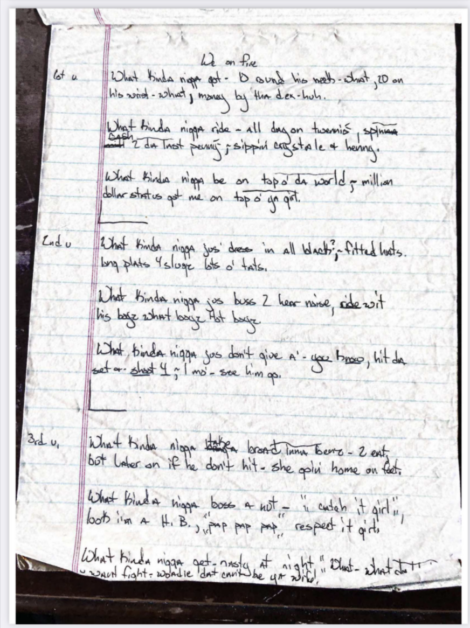 We on fire
1st v. What kinda nigga got - 10 round his neck - what, 20 on
his wrist - what, money by tha dex - huh.
What kinda nigga ride - all day on twennis, spinnin
2 da last penny; sippin crystale & henny.
What kinda nigga be on top o' da world; million
dollar status got me on top o' ya girl.
2nd v. What kinda nigga jus' dress in all black; - fitted hats.
long plats 4 slugz lots o' tats.
What kinda nigga jus buss 2 hear noise, ride wit
his boyz what boyz Hot boyz
What kinda nigga jus don't give a' - you know, hit da
set - shoot 1; 1 mo' - see him go.
3rd v. What kinda nigga broad inna benz - 2 eat,
but later on if he don't hit - she goin home on feet.
What kinda nigga boss a hot - "u catch it girl",
look i'm a H.B., "pop pop pop" respect it girl.
What kinda nigga get - nasty at night, "What - what
wanna fight - wodie dat can't be ya wife.